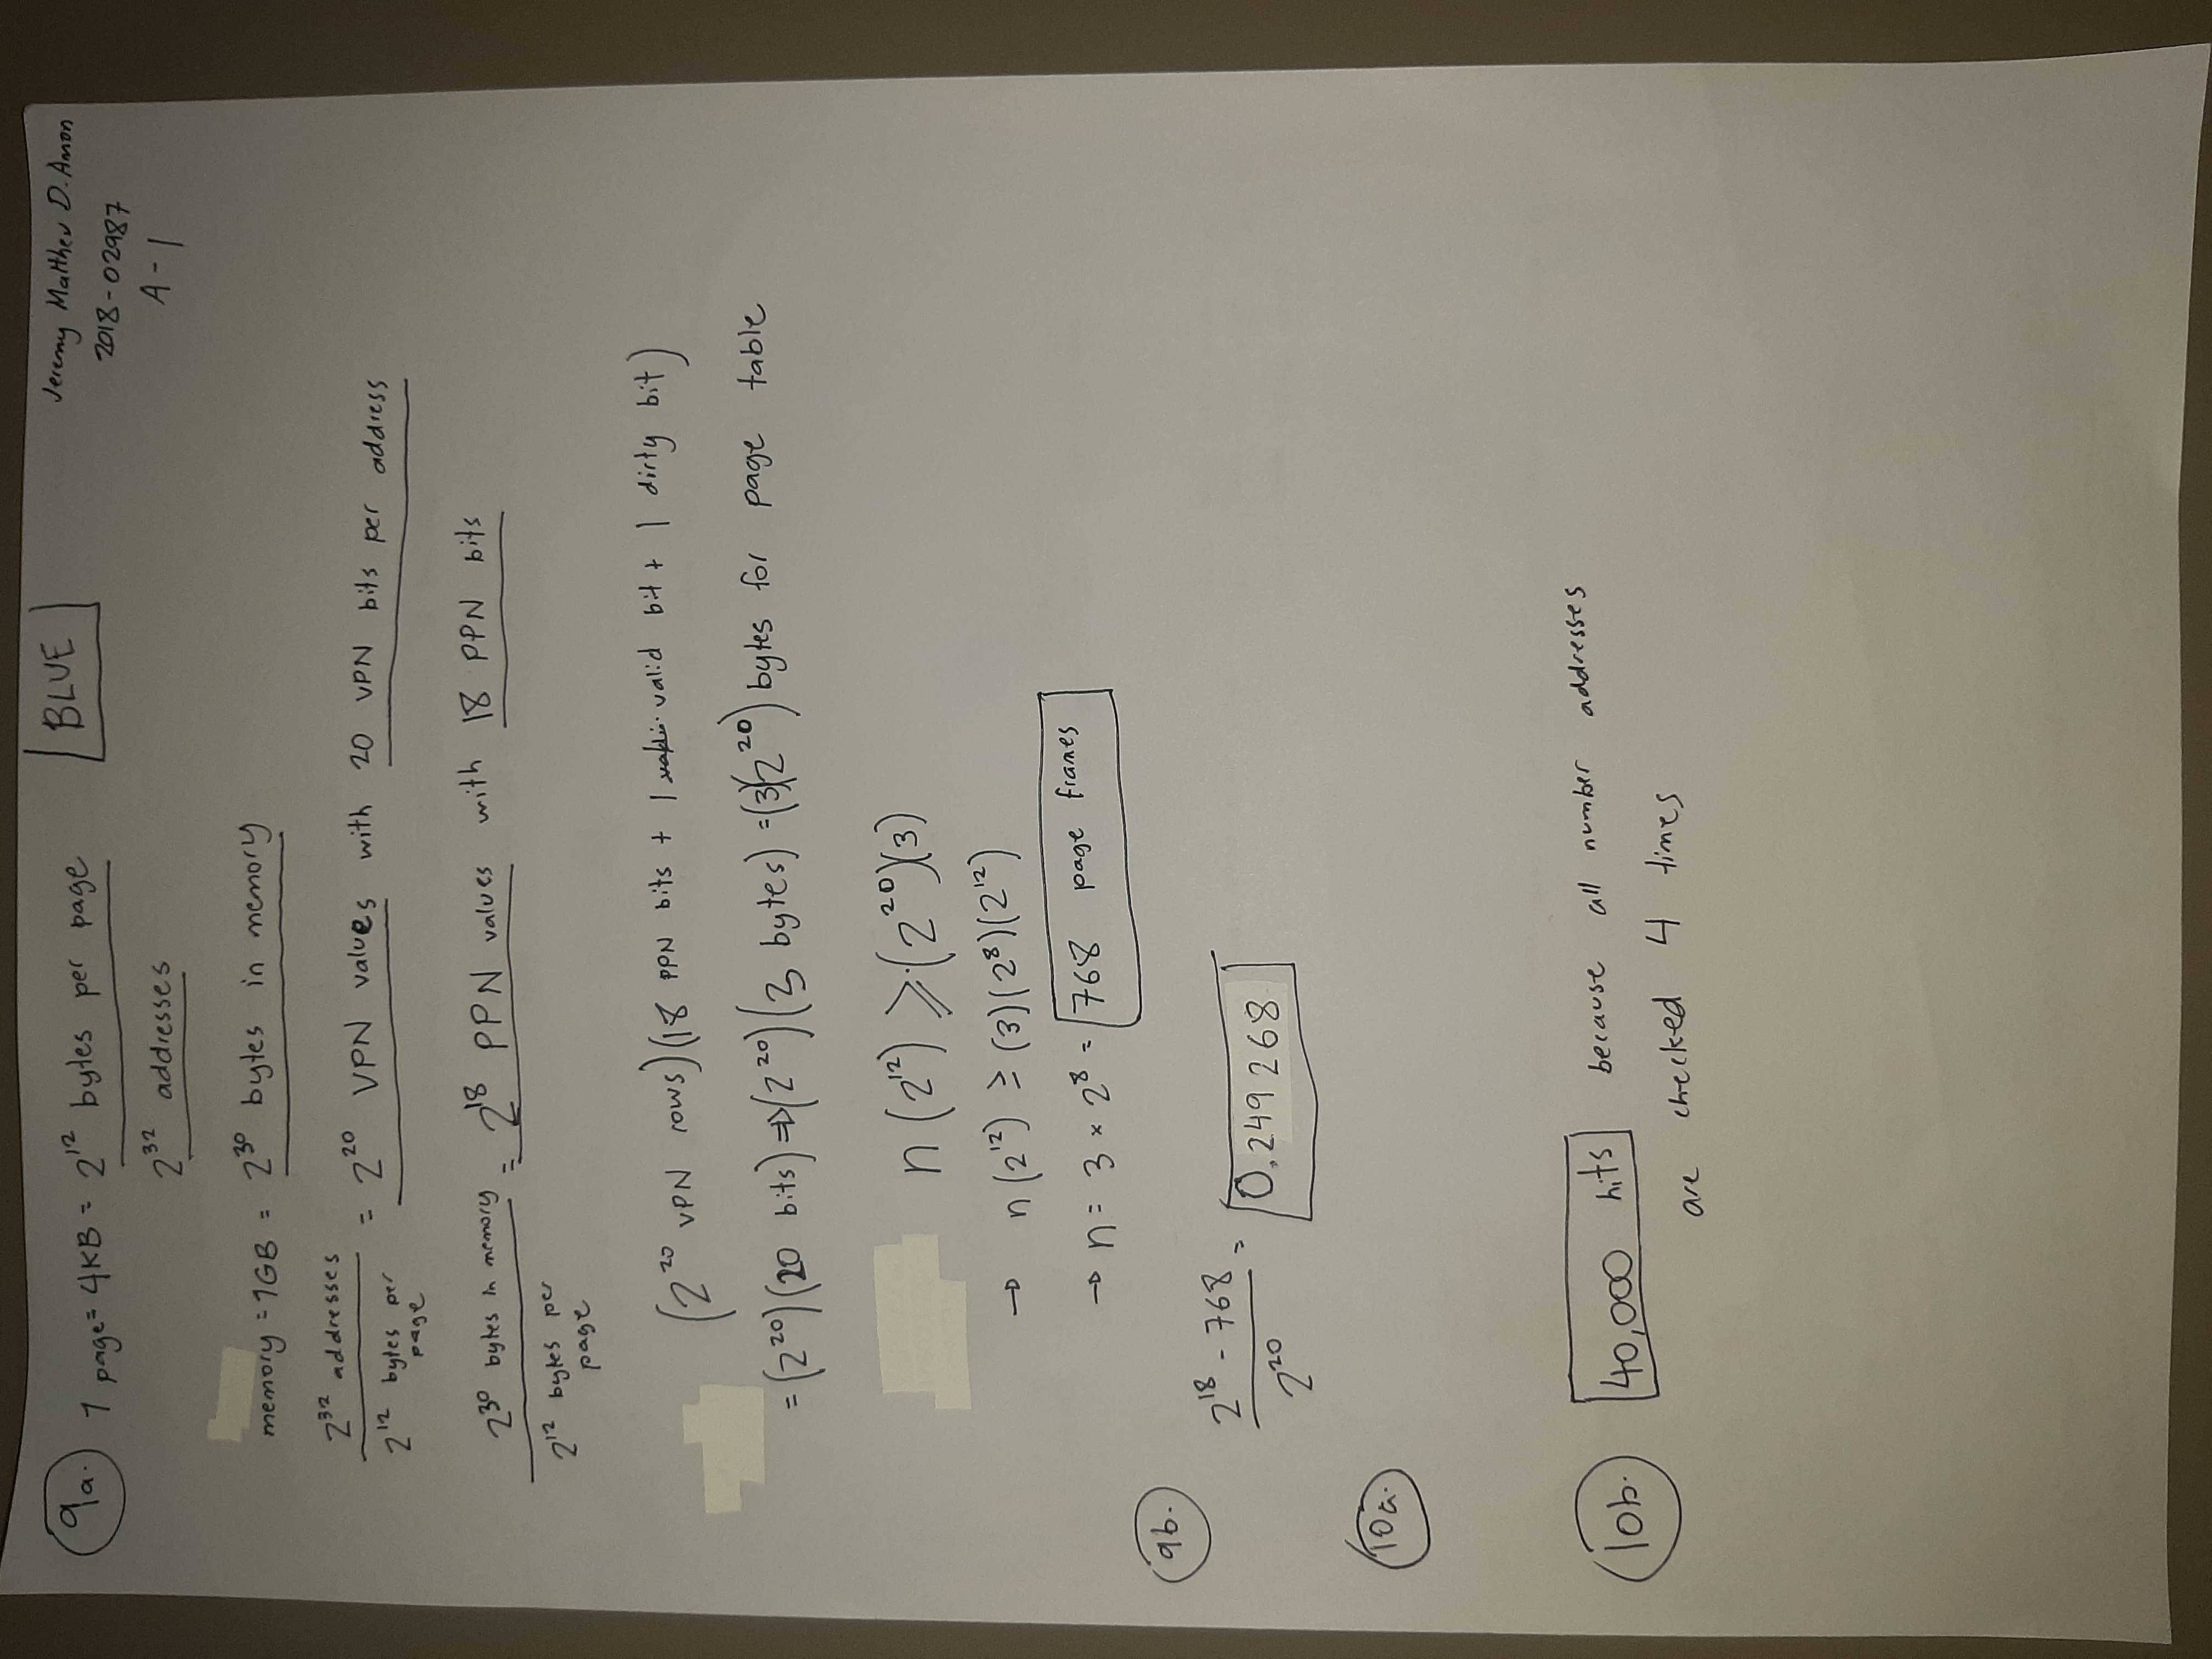 9a. 1 page = 4KB = 2^12 bytes per page
BLUE
Jeremy Matthew D. Amon
2018-02987
A-1
2^32 addresses
memory = 1GB = 2^30 bytes in memory
2^32 addresses / 2^12 bytes per page = 2^20 VPN values with 20 VPN bits per address
2^30 bytes in memory / 2^12 bytes per page = 2^18 PPN values with 18 PPN bits
(2^20 VPN rows)(18 PPN bits + 1 valid bit + 1 dirty bit)
= (2^20)(20 bits) ⇒ (2^20)(3 bytes) = (3)(2^20) bytes for page table
n(2^12) ≥ (2^20)(3)
→ n(2^12) ≥ (3)(2^8)(2^12)
→ n = 3 × 2^8 = 768 page frames
9b.
2^18 - 768 / 2^20 = 0.249268
10a.
10b. 40,000 hits because all number addresses
are checked 4 times